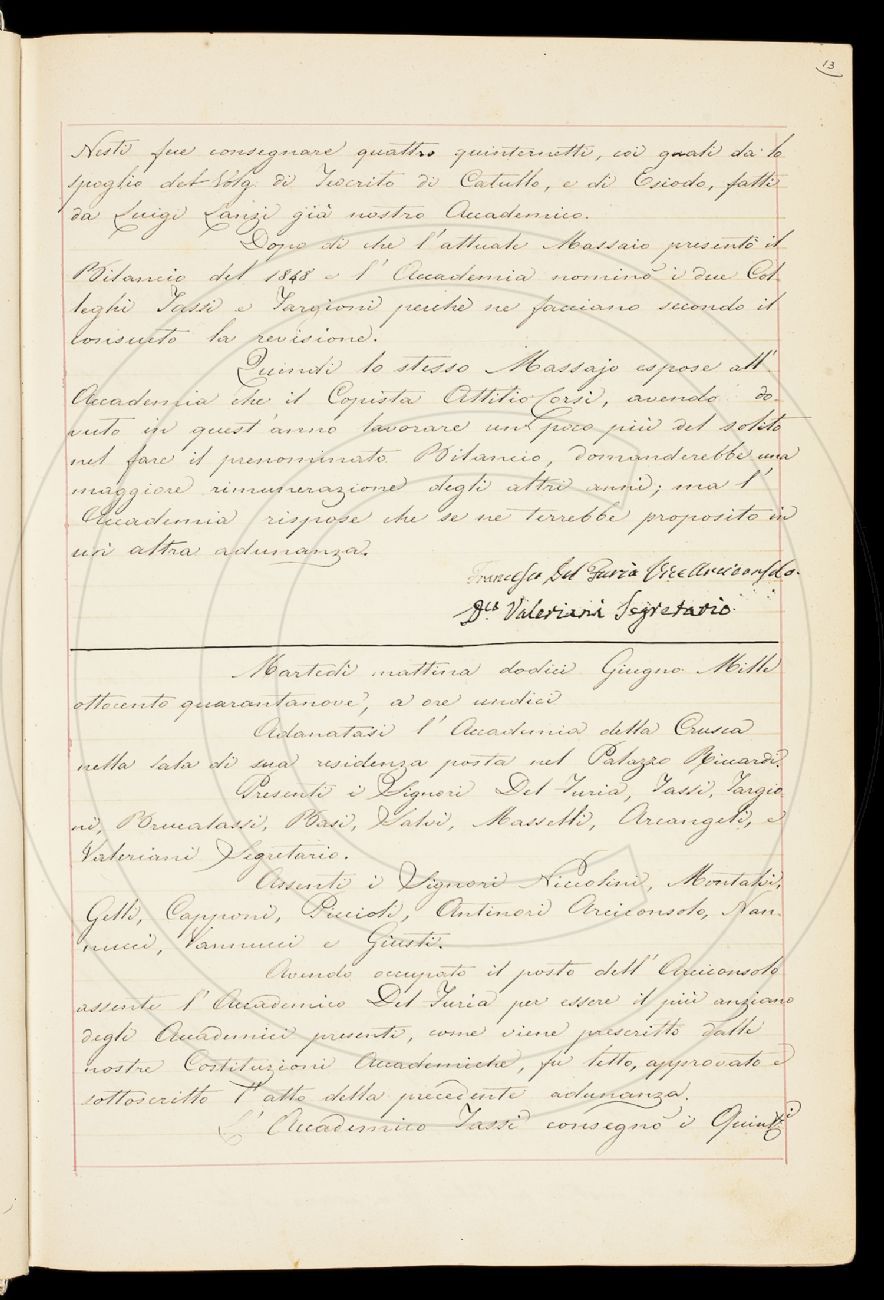 13
Nesti fece consegnare quattro quinternetti, coi quali dà lo
spoglio del Volg. di Teocrito di Catullo, e di Esiodo, fatti
da Luigi Lanzi già nostro Accademico.
Dopo di che l'attuale Massaio presentò il
Bilancio del 1848 e l'Accademia nominò i due Col-
leghi Tassi e Targioni perché ne facciano secondo il
consueto la revisione.
Quindi lo stesso Massajo espose all'
Accademia che il Copista Attilio Corsi, avendo do-
vuto in quest'anno lavorare un poco più del solito
nel fare il prenominato Bilancio, domanderebbe una
maggiore rimunerazione degli altri anni; ma l'
Accademia rispose che se ne terrebbe proposito in
un altra adunanza.
Francesco Del Furia Vicearciconsolo.
Dco Valeriani Segretario
Martedì mattina dodici Giugno Mille
ottocento quarantanove, a ore undici
Adunatasi l'Accademia della Crusca
nella sala di sua residenza posta nel Palazzo Riccardi.
Presenti i Signori Del Furia, Tassi, Targio-
ni, Brucalassi, Basi, Salvi, Masselli, Arcangeli, e
Valeriani Segretario.
Assenti i Signori Niccolini, Montalvi,
Gelli, Capponi, Piccioli, Antinori Arciconsolo, Nan-
nucci, Vannucci e Giusti.
Avendo occupato il posto dell'Arciconsolo
assente l'Accademico Del Furia per essere il più anziano
degli Accademici presenti, come viene prescritto dalle
nostre Costituzioni Accademiche, fu letto, approvato e
sottoscritto l'atto della precedente adunanza.
L'Accademico Tassi consegnò i Quinti